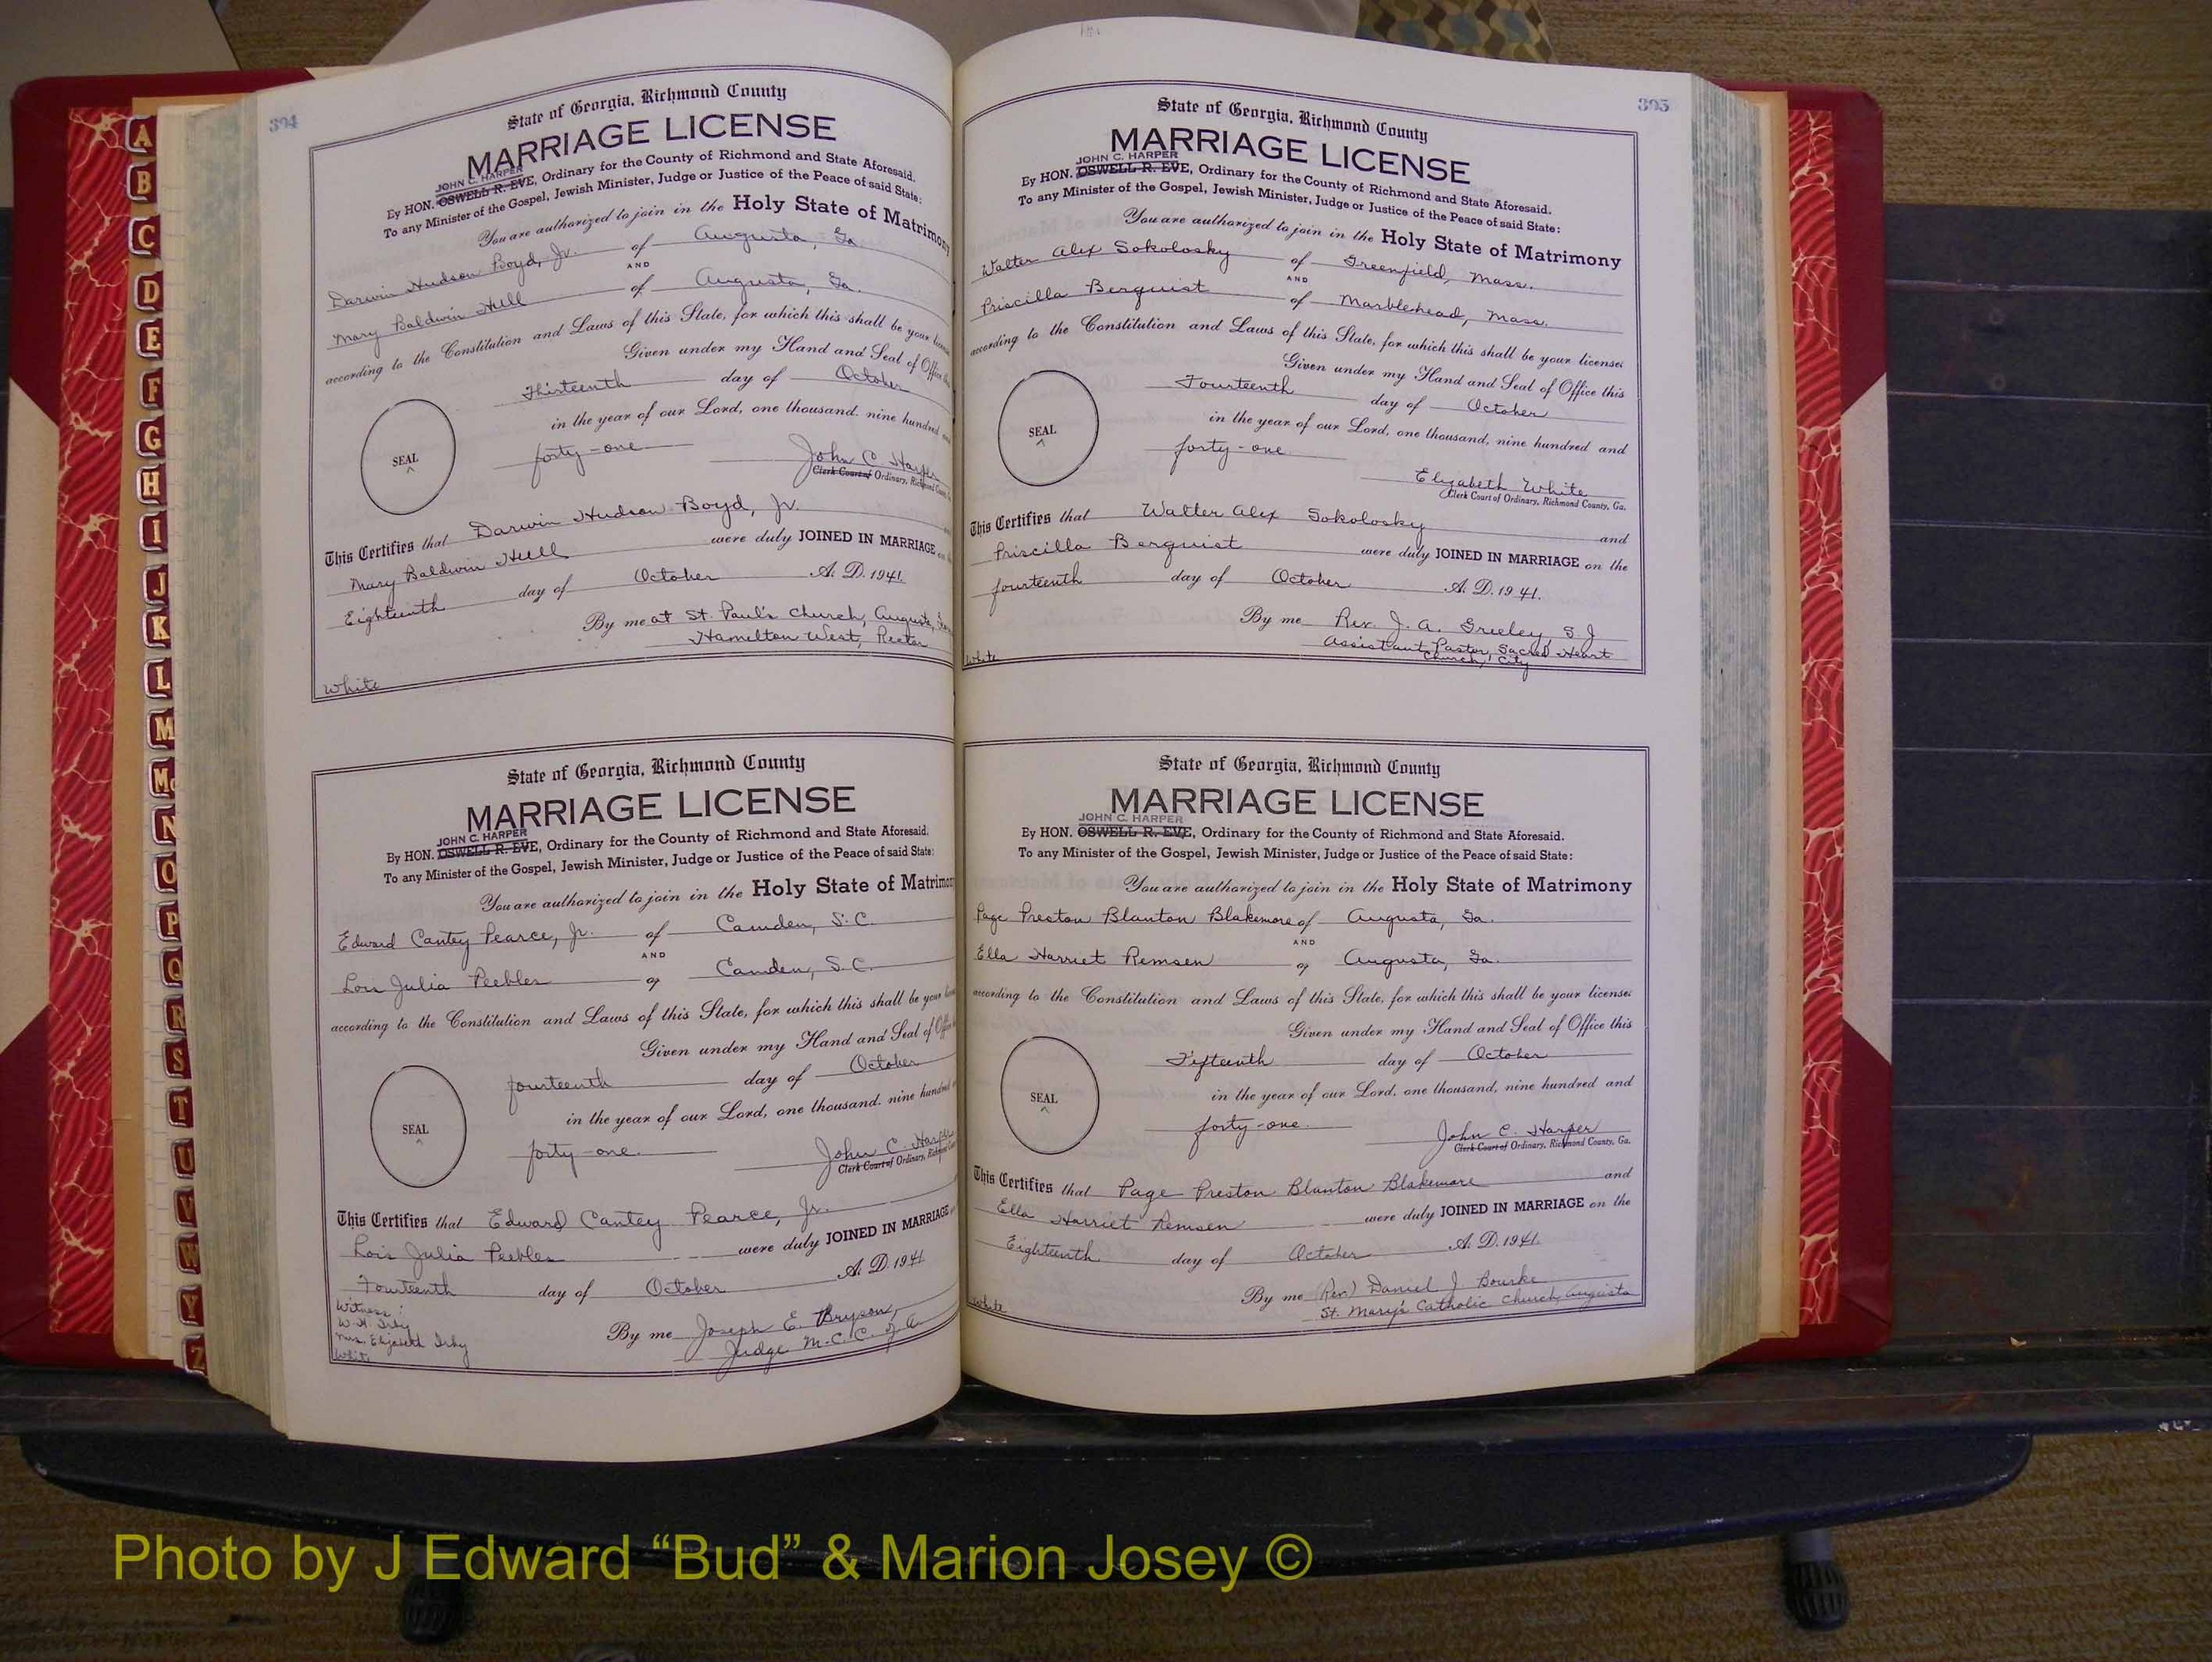 394
State of Georgia, Richmond County
MARRIAGE LICENSE
JOHN C. HARPER
By HON. OSWELL R. EVE, Ordinary for the County of Richmond and State Aforesaid.
To any Minister of the Gospel, Jewish Minister, Judge or Justice of the Peace of said State:
You are authorized to join in the Holy State of Matrimony
Darwin Hudson Boyd, Jr. of Augusta, Ga
AND
Mary Baldwin Hull of Augusta, Ga.
according to the Constitution and Laws of this State, for which this shall be your
Given under my Hand and Seal of Office
Thirteenth day of October
in the year of our Lord, one thousand. nine hundred
forty-one
SEAL
John C. Harper
Clerk Court of Ordinary, Richmond
This Certifies that Darwin Hudson Boyd, Jr.
Mary Baldwin Hull were duly JOINED IN MARRIAGE
Eighteenth day of October A. D. 1941.
By me at St. Paul's Church, Augusta,
Hamilton West, Rector
White
State of Georgia, Richmond County
MARRIAGE LICENSE
JOHN C. HARPER
By HON. OSWELL R. EVE, Ordinary for the County of Richmond and State Aforesaid.
To any Minister of the Gospel, Jewish Minister, Judge or Justice of the Peace of said State:
You are authorized to join in the Holy State of Matrimony
Edward Cantey Pearce, Jr. of Camden, S.C.
AND
Lois Julia Peebles of Camden, S.C.
according to the Constitution and Laws of this State, for which this shall be your
Given under my Hand and Seal of
fourteenth day of October
in the year of our Lord, one thousand. nine hundred
forty-one.
SEAL
John C. Harper
Clerk Court of Ordinary,
This Certifies that Edward Cantey Pearce, Jr.
Lois Julia Peebles were duly JOINED IN MARRIAGE
Fourteenth day of October A. D. 1941.
Witness:
W. H. Irby
Mrs. Elizabeth Irby
White
By me Joseph E. Bryson,
Judge M.C.C. of A
395
State of Georgia, Richmond County
MARRIAGE LICENSE
JOHN C. HARPER
By HON. OSWELL R. EVE, Ordinary for the County of Richmond and State Aforesaid.
To any Minister of the Gospel, Jewish Minister, Judge or Justice of the Peace of said State:
You are authorized to join in the Holy State of Matrimony
Walter Alex Sokolosky of Greenfield, Mass.
AND
Priscilla Berquist of Marblehead, Mass.
according to the Constitution and Laws of this State, for which this shall be your license:
Given under my Hand and Seal of Office this
Fourteenth day of October
in the year of our Lord, one thousand, nine hundred and
forty-one.
SEAL
Elizabeth White
Clerk Court of Ordinary, Richmond County, Ga.
This Certifies that Walter Alex Sokolosky and
Priscilla Berquist were duly JOINED IN MARRIAGE on the
fourteenth day of October A. D. 1941.
By me Rev. J. A. Greeley, S.J
Assistant Pastor, Sacred Heart
Church, City
White
State of Georgia, Richmond County
MARRIAGE LICENSE
JOHN C. HARPER
By HON. OSWELL R. EVE, Ordinary for the County of Richmond and State Aforesaid.
To any Minister of the Gospel, Jewish Minister, Judge or Justice of the Peace of said State:
You are authorized to join in the Holy State of Matrimony
Page Preston Blanton Blakemore of Augusta, Ga.
AND
Ella Harriet Remsen of Augusta, Ga.
according to the Constitution and Laws of this State, for which this shall be your license:
Given under my Hand and Seal of Office this
Fifteenth day of October
in the year of our Lord, one thousand, nine hundred and
forty-one.
SEAL
John C. Harper
Clerk Court of Ordinary, Richmond County, Ga.
This Certifies that Page Preston Blanton Blakemore and
Ella Harriet Remsen were duly JOINED IN MARRIAGE on the
Eighteenth day of October A. D. 1941.
By me (Rev) Daniel J. Bourke
St. Mary's Catholic Church, Augusta
White
A
B
C
D
E
F
G
H
I
J
K
L
M
Mc
N
O
P
Q
R
S
T
U
V
W
Y
Z
Photo by J Edward “Bud” & Marion Josey ©